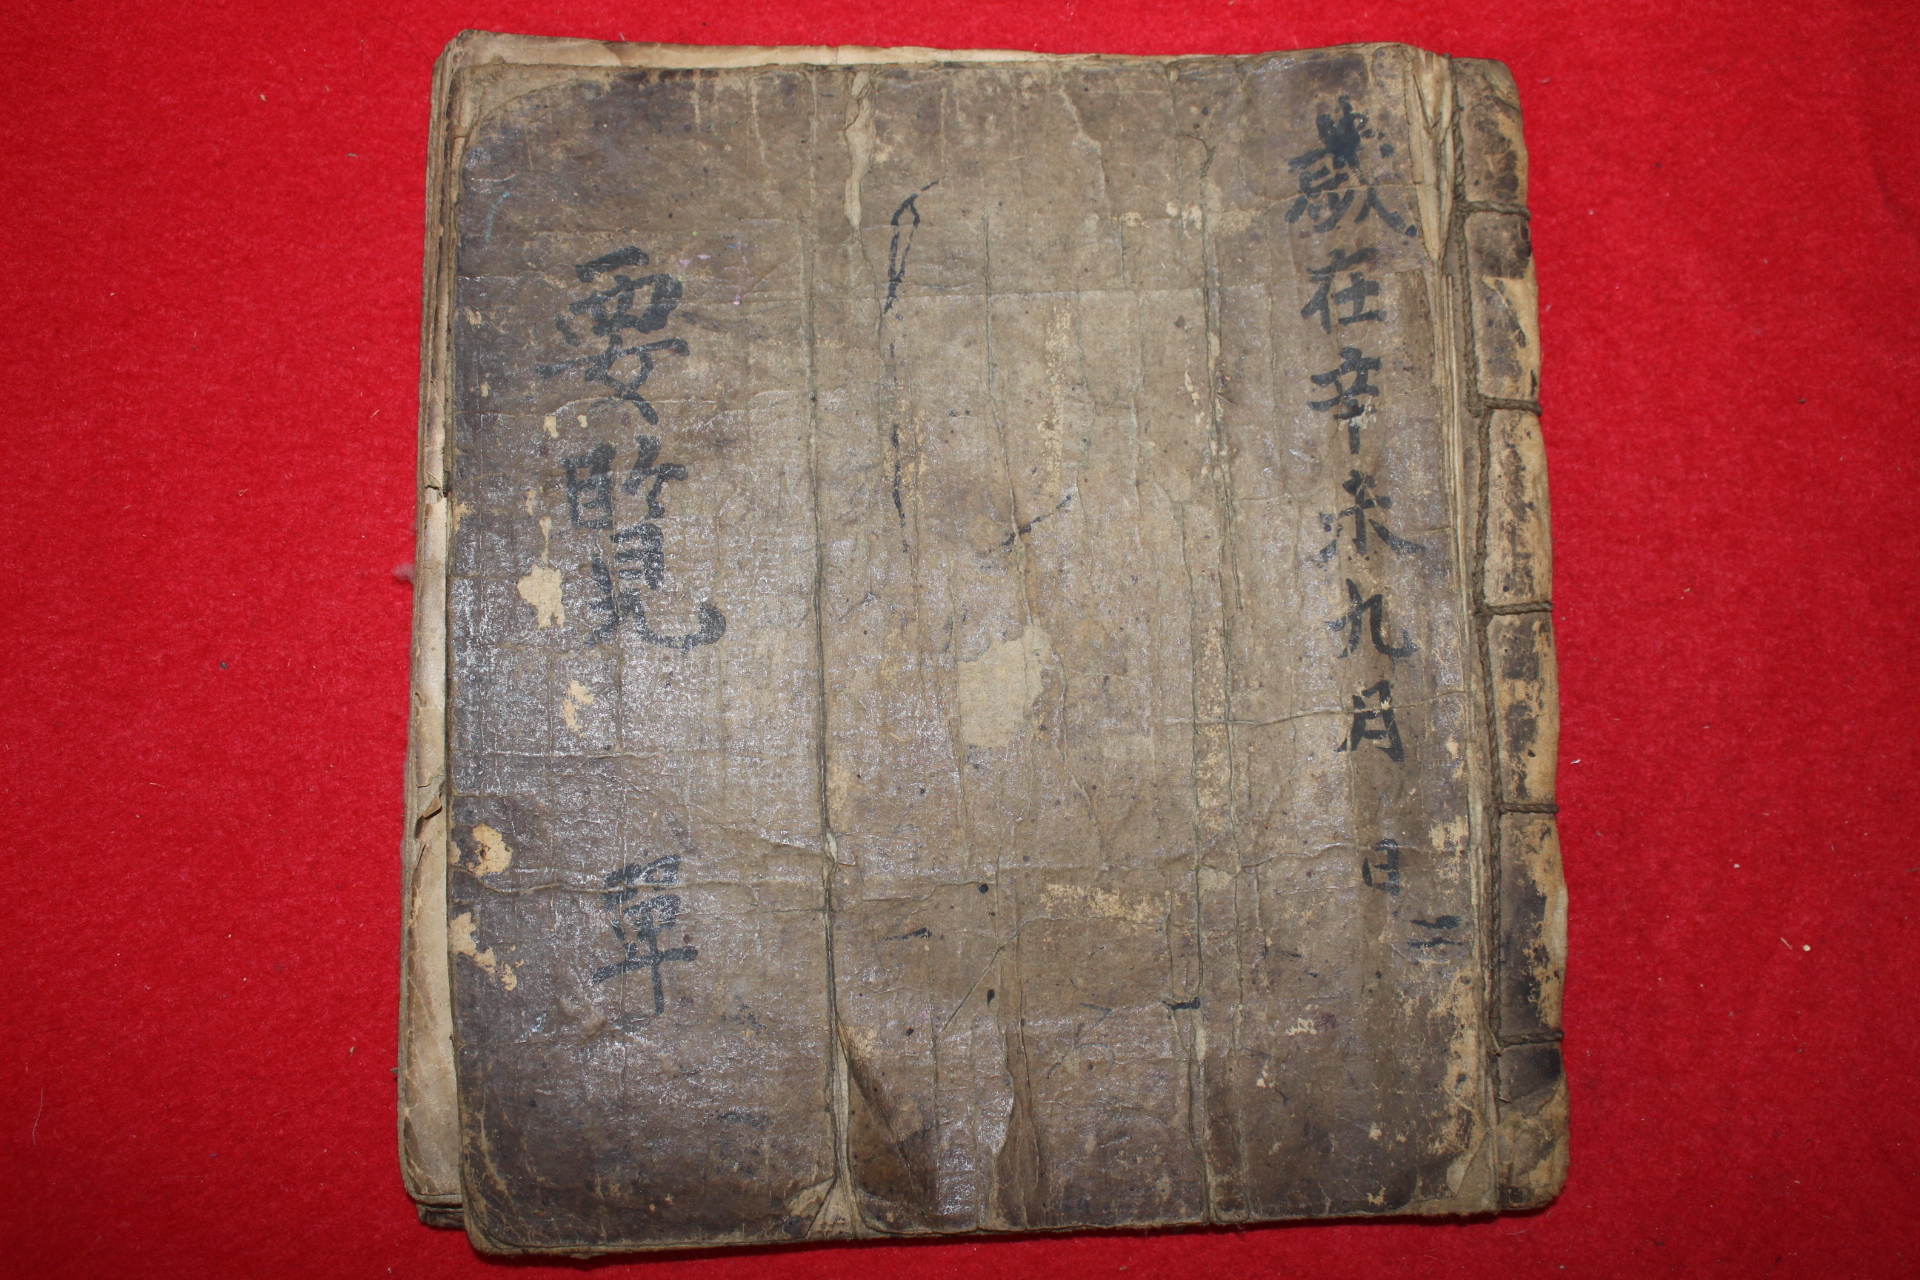 歲在辛未九月 日
二
要覽 單